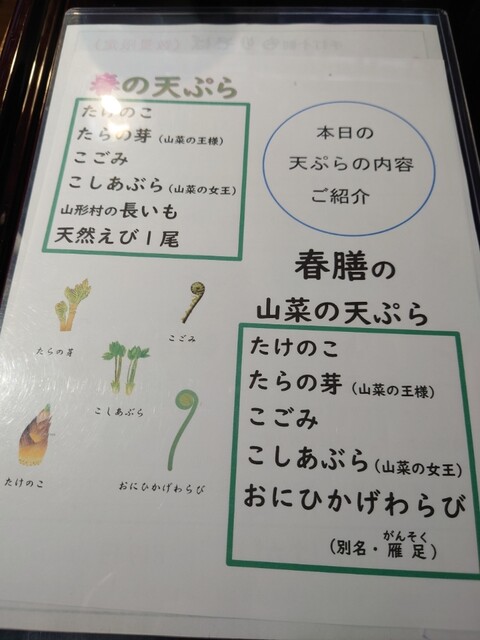 春の天ぷら
たけのこ
たらの芽（山菜の王様）
こごみ
こしあぶら（山菜の女王）
山形村の長いも
天然えび1尾
本日の
天ぷらの内容
ご紹介
春膳の
山菜の天ぷら
たけのこ
たらの芽（山菜の王様）
こごみ
こしあぶら（山菜の女王）
おにひかげわらび
がんそく
（別名・雁足）
たらの芽
こごみ
こしあぶら
たけのこ
おにひかげわらび